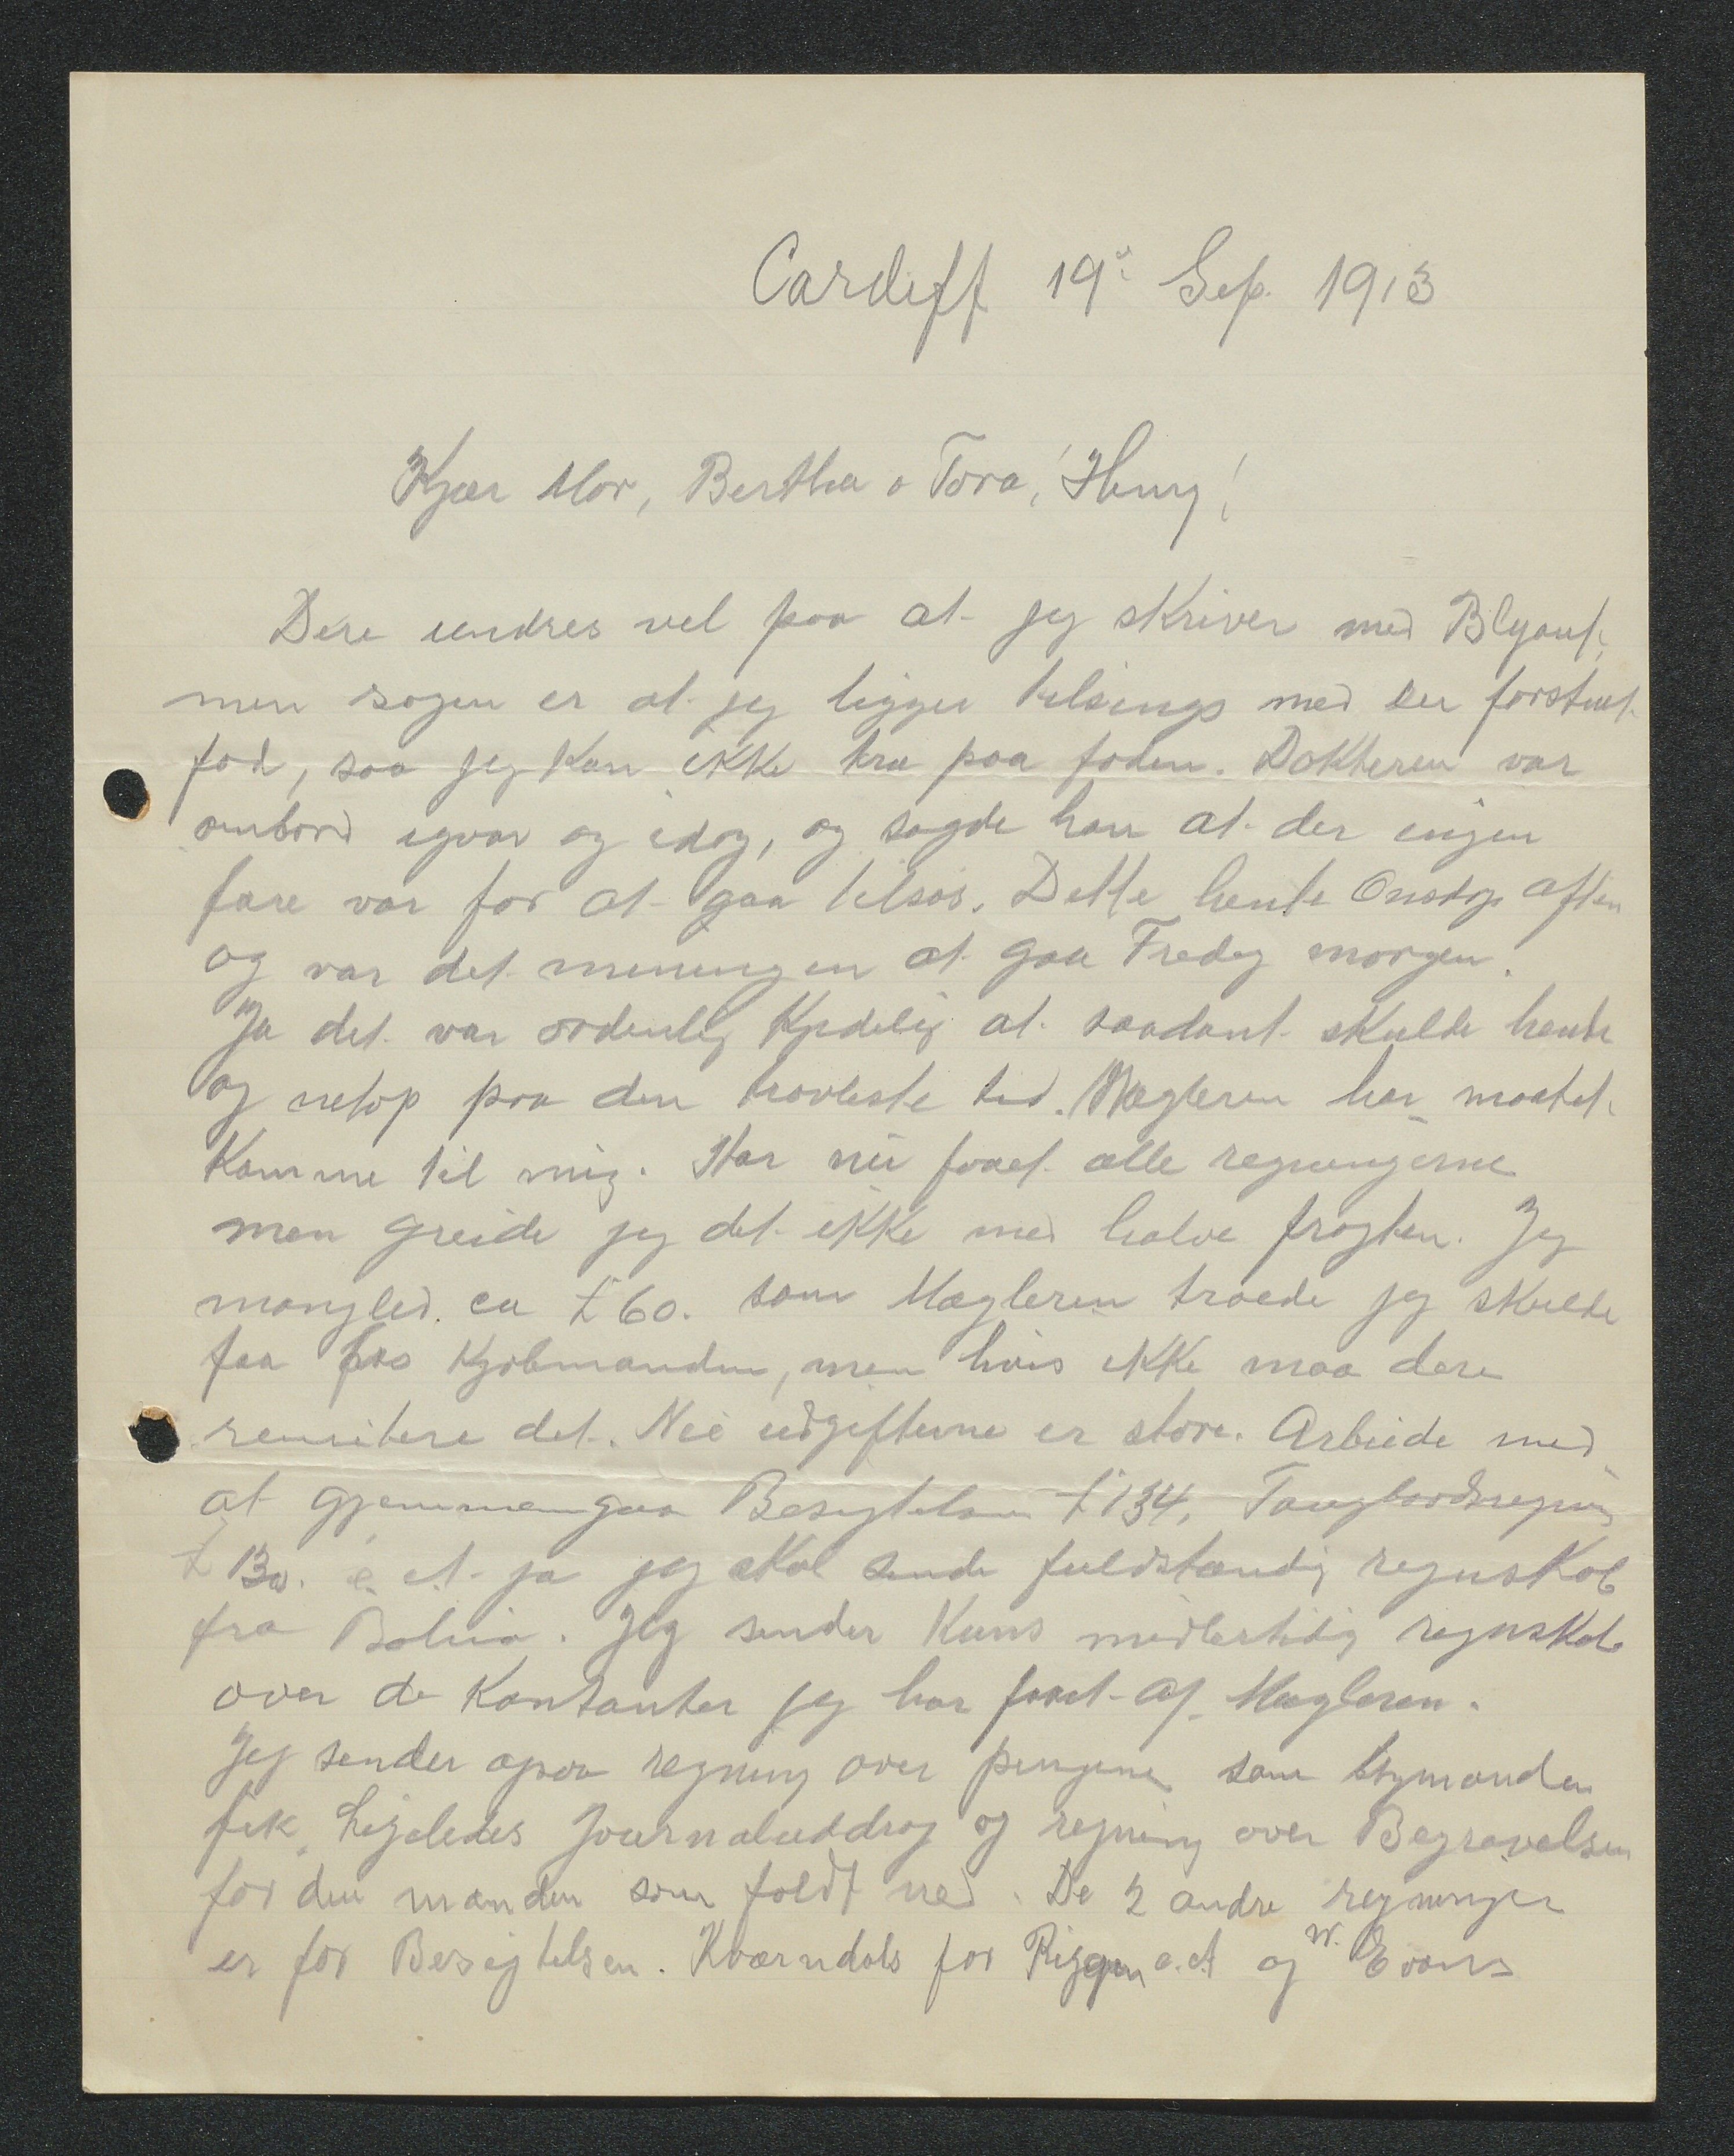 Cardiff 19de Sep. 1913
Kjær Mor, Bertha o Tora, Henry!
Dere undres vel paa at jeg skriver med Blyant,
men sagen er at jeg ligger tilsengs med en forstuet
fod, saa jeg kan ikke træ paa foden. Doktoren var
ombord igaar og idag, og sagde han at der ingen
fare var for at gaa tilsøs. Dette hente Onsdg aften
og var det meningen at gaa Fredag morgen.
Ja det var ordenlig kjedelig at saadant skulde hente
og netop paa den travleste tid. Mægleren har maatet
komme til mig. Har nu faaet alle regningerne
men greide jeg det ikke med halve fragten. Jeg
mangled ca £ 60. som Mægleren troede jeg skulde
faa hos Kjøbmanden, men hvis ikke maa dere
remitere det. Nei udgifterne er store. Arbeide med
at gjennemgaa Besigtelsen £ 134,
£ 130. e. ct. ja jeg skal sende fuldstændig regnskab
fra Bahia. Jeg sender kuns midlertidig regnskab
over de Kontanter jeg har faaet af Mægleren.
Jeg sender ogsaa regning over pengene som Stymanden
fik, Ligeledes Journaluddrag og regning over Begravelsen
for den manden som faldt ned. De 2 andre regninger
er for Besigtelsen. Kværndals for Riggen e.ct og W. Evans